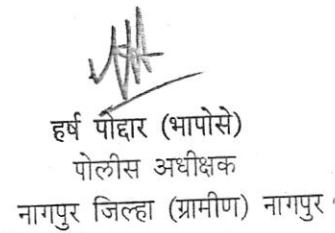 हर्ष पोद्दार (भापोसे)
पोलीस अधीक्षक
नागपुर जिल्हा (ग्रामीण) नागपुर